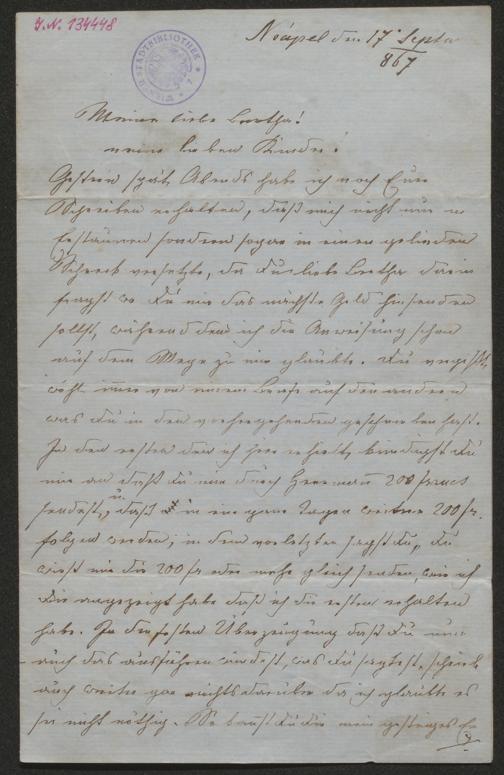 I.N. 134448
STADTBIBLIOTHEK WIEN
Neapel den 17t Septr
867
Meine liebe Bertha!
meine lieben Kinder!
Gestern spät Abends habe ich noch Euer
Schreiben erhalten, daß mich nicht nur in
Erstaunen sondern sogar in einen gelinden
Schreck versetzte, da Du liebe Bertha darin
fragst wo Du mir das nächste Geld hinsenden
sollst, während dem ich die Anweisung schon
auf dem Wege zu mir glaubte. Du vergißt
wohl immer von einem Briefe auf den andern
was Du in den vorhergehenden geschrieben hast.
In den ersten den ich hier erhielt, kündigst Du
mir an daß Du mir durch Herrmann 200 francs
sendest, u. daß in ein paar Tagen weitere 200 fr.
folgen werden; in dem vorletzten sagst Du, Du
wirst mir die 200 fr oder mehr gleich senden, wie ich
Dir angezeigt habe daß ich die ersten erhalten
habe. In der festen Überzeugung daß Du nun
auch das ausführen würdest, was Du sagtest, schrieb
auch weiter gar nichts darüber da ich glaubte es
sei nicht nöthig. So baust Du Dir mein gestriges